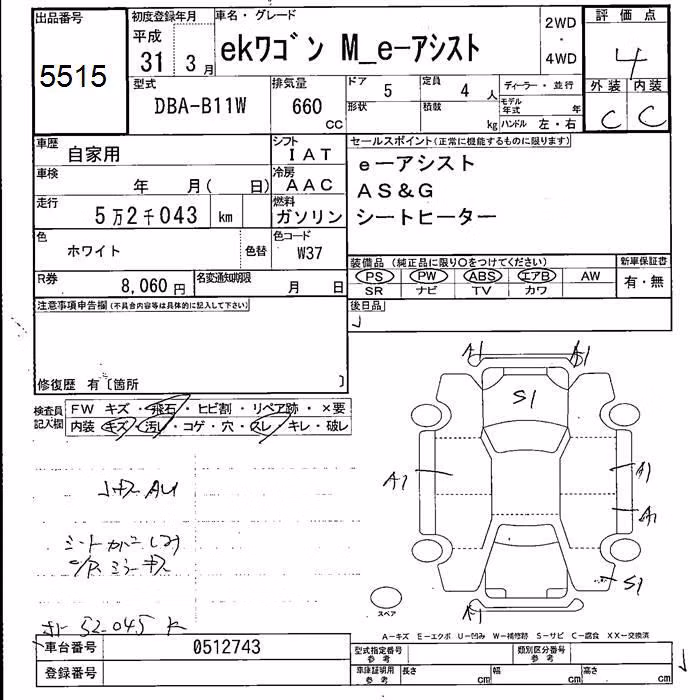 出品番号
5515
初度登録年月
平成
31 3月
車名・グレード
ekワゴン M_e-アシスト
2WD
・
4WD
評価点
4
外装 内装
C C
型式
DBA-B11W
排気量
660
cc
ドア 5
定員 4 人
形状
積載 kg
ディーラー・並行
モデル年式 年
ハンドル 左・右
車歴 自家用
シフト IAT
車検 年 月( 日)
冷房 AAC
走行 5万2千043 km
燃料 ガソリン
色 ホワイト 色替
色コード W37
R券 8,060円
名変通知期限 月 日
セールスポイント(正常に機能するものに限ります)
e-アシスト
AS&G
シートヒーター
装備品(純正品に限り○をつけてください)
PS PW ABS エアB AW
SR ナビ TV カワ
新車保証書
有・無
注意事項申告欄(不具合内容等は具体的に記入して下さい)
後日品
修復歴 有〔箇所 〕
検査員記入欄
FW キズ・飛石・ヒビ割・リペア跡・×要
内装 キズ・汚レ・コゲ・穴・スレ・キレ・破レ
A1 A1
S1
A1 A1
A1
S1
A1
スペア
シートカバーしみ
52.045 K
A-キズ E-エクボ U-凹み W-補修跡 S-サビ C-腐食 XX-交換済
車台番号 0512743
登録番号
型式指定番号 参考
類別区分番号 参考
車庫証明用 参考
長さ cm 幅 cm 高さ cm